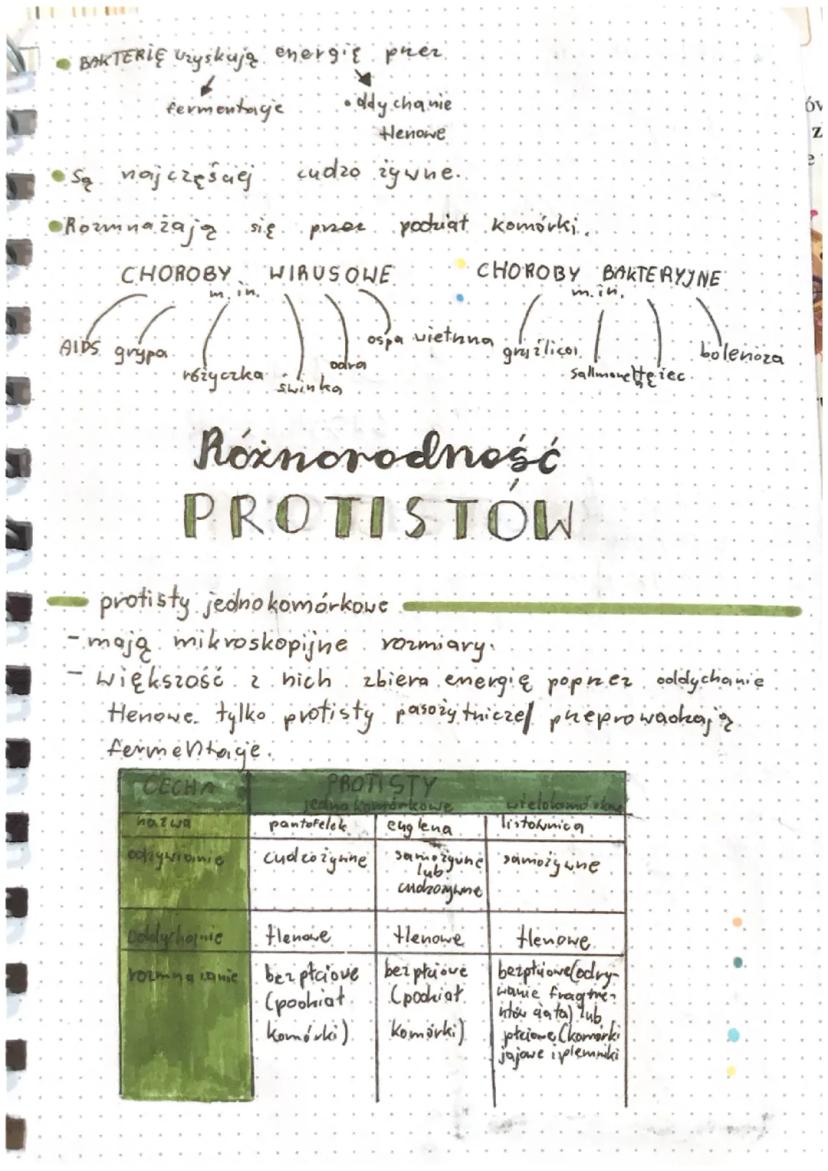 • BAKTERIĘ uzyskują energię przez
fermentaje
• oddychanie
tlenowe
• Są najczęściej cudzo żywne.
• Rozmnażają się przez podział komórki.
CHOROBY WIRUSOWE
m.in.
AIDS grypa różyczka świnka odra ospa wietrzna
CHOROBY BAKTERYJNE
m.in.
gruźlica sallmonella tężec bolerioza
Różnorodność
PROTISTÓW
protisty jednokomórkowe
- mają mikroskopijne rozmiary.
- większość z nich zbiera energię poprzez oddychanie
tlenowe. tylko protisty pasożytnicze przeprowadzają
fermentaje.
CECHA PROTISTY
jednokomórkowe wielokomórkowe
nazwa pantofelek euglena listownica
odżywianie cudzożywne samożywne lub cudzożywne samożywne
oddychanie tlenowe tlenowe tlenowe
rozmnażanie bezpłciowe (podział komórki) bezpłciowe (podział komórki) bezpłciowe (odrywanie fragmentów ciała) lub płciowe (komórki jajowe i plemniki